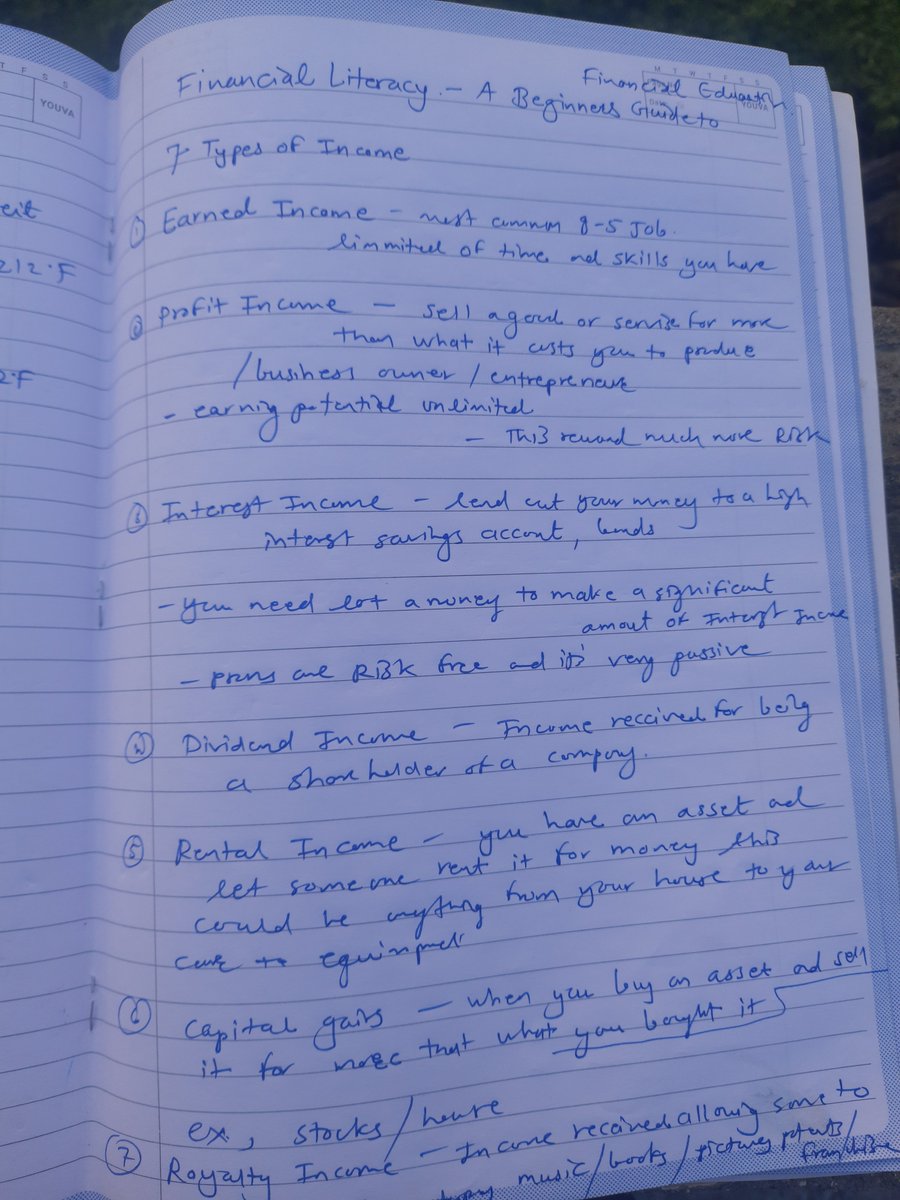 T F S S
YOUVA
eit
212°F
2°F
M T W T F S S
YOUVA
Financial Literacy - A Beginners Guide to
Financial Eduation
7 Types of Income
① Earned Income - most common 8-5 Job.
limmited of time and skills you have
② Profit Income - sell a good or service for more
than what it costs you to produce
/business owner / entrepreneur
- earning potential unlimited
- This reward much more RISK
③ Interest Income - lend out your money to a high
interst savings accont, bonds
- you need lot a money to make a significant
amout of Interst Income
- pros are RISK free and its' very passive
④ Dividend Income - Income received for being
a shareholder of a company.
⑤ Rental Income - you have an asset ad
let someone rent it for money this
could be anything from your house to your
to
⑥ Capital gains - when you buy an asset ad sell
it for more that what you bought it
ex, stocks/house
⑦ Royalty Income - Income received allowing some to
music/books/pictures